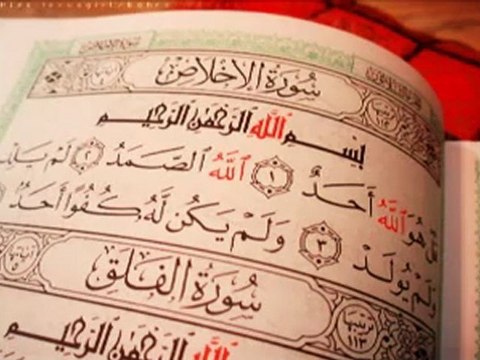 سُورَةُ الإِخْلَاصِ
بِسْمِ اللَّهِ الرَّحْمَٰنِ الرَّحِيمِ
قُلْ هُوَ اللَّهُ أَحَدٌ ١ اللَّهُ الصَّمَدُ ٢ لَمْ يَلِدْ
وَلَمْ يُولَدْ ٣ وَلَمْ يَكُن لَّهُ كُفُوًا أَحَدٌ
سُورَةُ الْفَلَقِ
تَرْتِيبُهَا ١١٣
بِسْمِ اللَّهِ الرَّحْمَٰنِ الرَّحِيمِ